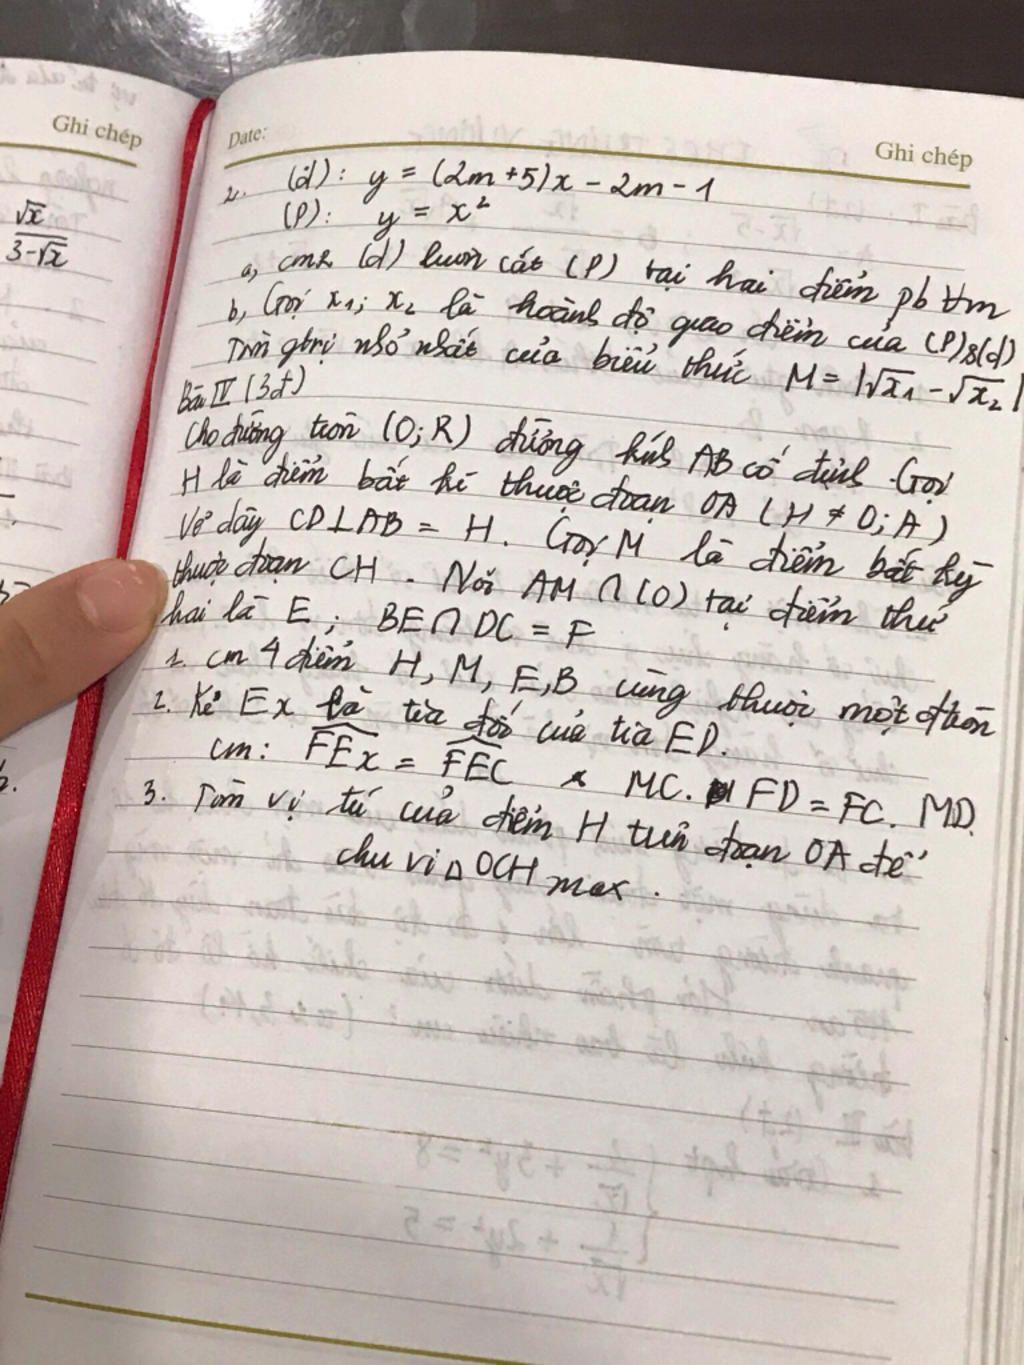 Ghi chép
√x
3-√x
Date:
Ghi chép
2. (d): y = (2m+5)x - 2m - 1
(P): y = x²
a, cmR (d) luôn cắt (P) tại hai điểm pb ∀m
b, Gọi x₁; x₂ là hoành độ giao điểm của (P)&(d)
Tìm gtrị nhỏ nhất của biểu thức M = |√x₁ - √x₂|
Bài IV (3đ)
Cho đường tròn (O; R) đường kính AB cố định. Gọi
H là điểm bất kì thuộc đoạn OA (H ≠ O; A)
Vẽ dây CD⊥AB = H. Gọi M là điểm bất kỳ
thuộc đoạn CH. Nối AM ∩ (O) tại điểm thứ
hai là E; BE∩DC = F
1. cm 4 điểm H, M, E, B cùng thuộc một đtròn
2. Kẻ Ex là tia đối của tia ED.
cm: FEx = FEC & MC. FD = FC. MD.
3. Tìm vị trí của điểm H trên đoạn OA để
chu vi △OCH max.